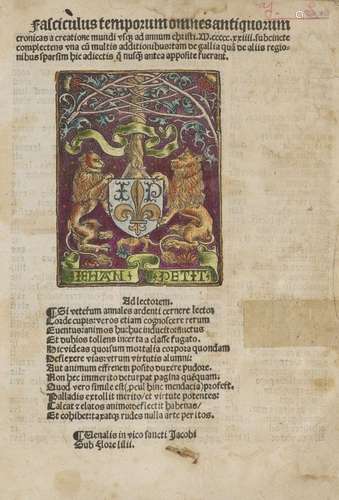 Fasciculus temporum omnes antiquorum
cronicas a creatione mundi vsqʒ ad annum christi .M.ccccc.xxiiii. succincte
complectens vna cū multis additionibus tam de gallia quā de aliis regio-
nibus sparsim hic adiectis q̄ nusqʒ antea apposite fuerant.
I P
IEHAN PETIT
Ad lectorem.
Si veterum annales ardenti cernere lector
Corde cupis: veros etiam cognoscere rerum
Euentus: animos huc huc inducito
Et dubios tollens incerta a classe fugato.
Hic videas quorsum mortalia corpora quondam
Deflexere vias: rerum virtutis alumni:
Aut animum effreni posito duxere pudore.
Non hec immerito deturpat pagina quēquam:
Quod vero simile est, pcul hinc mendacia profert.
Palladis extollit merito, et virtute potentes:
Calcat et elatos animo deflectit habenas,
Et cohibet ira rudes nulla arte peritos.
Uenalis in vico sancti Jacobi
Sub flore lilii.